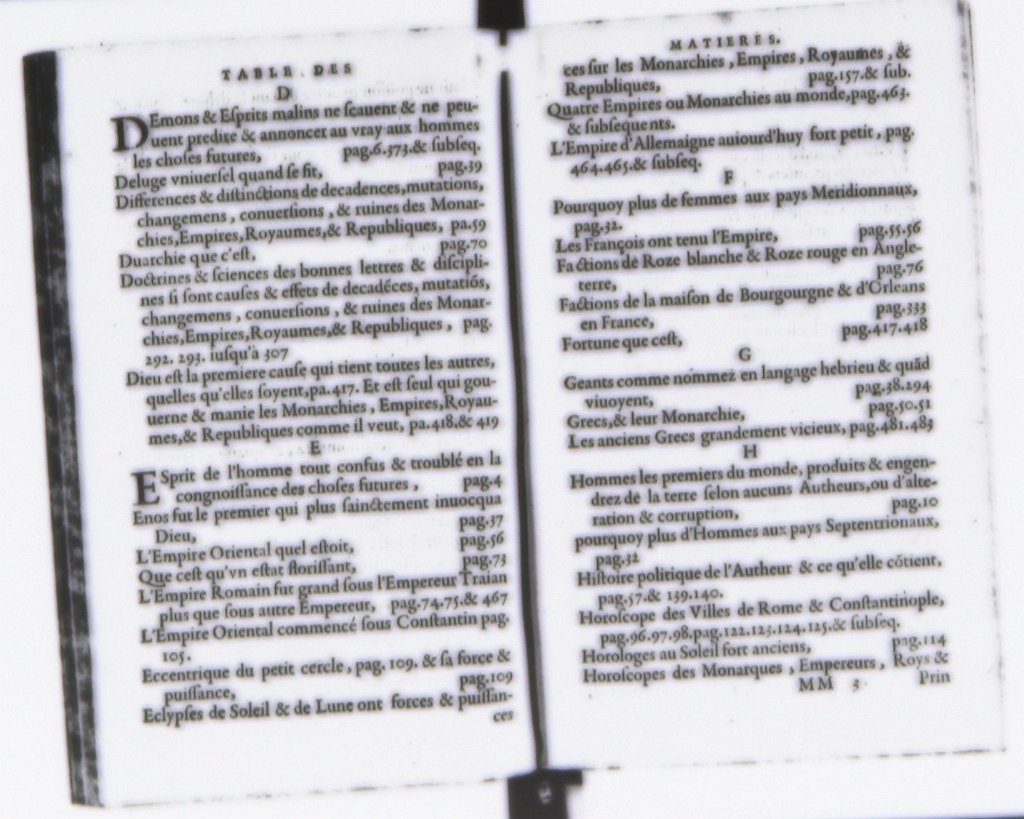 TABLE DES
D
DEmons & Eſprits malins ne ſcauent & ne peu-
uent predire & annoncer au vray aux hommes
les choſes futures, pag.6.373.& ſubſeq.
Deluge vniuerſel quand ſe fit, pag.39
Differences & diſtinctions de decadences,mutations,
changemens, conuerſions, & ruines des Monar-
chies,Empires,Royaumes,& Republiques, pa.59
Duarchie que c'eſt, pag.70
Doctrines & ſciences des bonnes lettres & diſcipli-
nes ſi ſont cauſes & effets de decadéces, mutatiõs,
changemens, conuerſions, & ruines des Monar-
chies,Empires,Royaumes,& Republiques, pag.
292. 293. iuſqu'à 307
Dieu eſt la premiere cauſe qui tient toutes les autres,
quelles qu'elles ſoyent,pa.417. Et eſt ſeul qui gou-
uerne & manie les Monarchies, Empires,Royau-
mes,& Republiques comme il veut, pa.418.& 419
E
ESprit de l'homme tout confus & troublé en la
congnoiſſance des choſes futures, pag.4
Enos fut le premier qui plus ſainctement inuocqua
Dieu, pag.37
L'Empire Oriental quel eſtoit, pag.56
Que ceſt qu'vn eſtat floriſſant, pag.73
L'Empire Romain fut grand ſous l'Empereur Traian
plus que ſous autre Empereur, pag.74.75.& 467
L'Empire Oriental commencé ſous Conſtantin pag.
105.
Eccentrique du petit cercle, pag. 109. & ſa force &
puiſſance, pag.109
Eclypſes de Soleil & de Lune ont forces & puiſſan-
ces
MATIERES.
ces ſur les Monarchies, Empires, Royaumes, &
Republiques, pag.157.& ſub.
Quatre Empires ou Monarchies au monde,pag.463.
& ſubſequents.
L'Empire d'Allemaigne auiourd'huy fort petit, pag.
464.465.& ſubſeq.
F
Pourquoy plus de femmes aux pays Meridionnaux,
pag.32.
Les François ont tenu l'Empire, pag.55.56
Factions de Roze blanche & Roze rouge en Angle-
terre, pag.76
Factions de la maiſon de Bourgourgne & d'Orleans
en France, pag.333
Fortune que ceſt, pag.417.418
G
Geants comme nommez en langage hebrieu & quãd
viuoyent, pag.38.294
Grecs,& leur Monarchie, pag.50.51
Les anciens Grecs grandement vicieux, pag.481.483
H
Hommes les premiers du monde, produits & engen-
drez de la terre ſelon aucuns Autheurs,ou d'alte-
ration & corruption, pag.10
pourquoy plus d'Hommes aux pays Septentrionaux,
pag.32
Hiſtoire politique de l'Autheur & ce qu'elle cõtient,
pag.57.& 139.140.
Horoſcope des Villes de Rome & Conſtantinople,
pag.96.97.98.pag.122.123.124.125.& ſubſeq.
Horologes au Soleil fort anciens, pag.114
Horoſcopes des Monarques, Empereurs, Roys &
MM 3. Prin